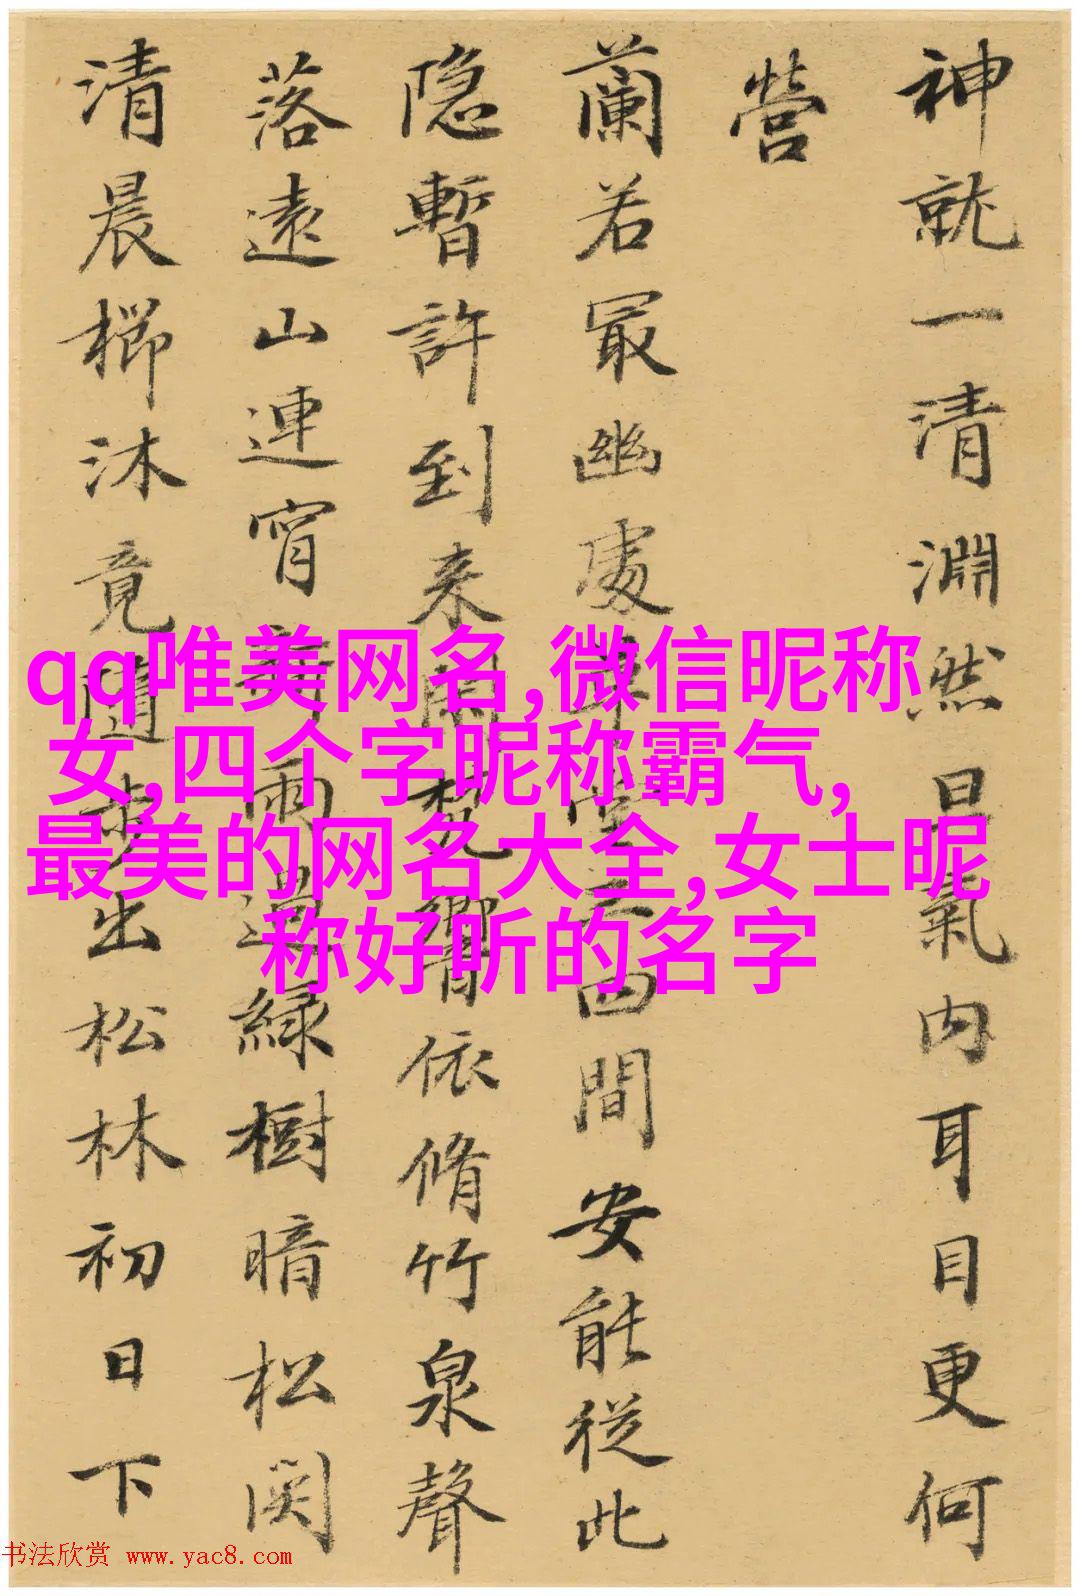 神就一清淵然旦氣内耳目更何
營
蘭若最幽處四間安能従此
隐暫許到来響依脩竹泉聲
落遠山連宵雨過緑樹暗松関
清晨櫛沐竟隨步出松林初日下
qq唯美网名,微信昵称
女,四个字昵称霸气,
最美的网名大全,女士昵
称好听的名字
书法欣赏 www.yac8.com